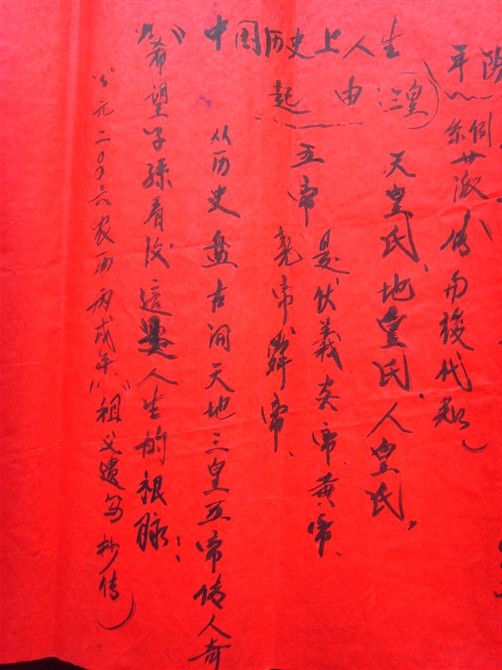 派傳与後代
中国历史上人生
起由(三皇)
天皇氏、地皇氏、人皇氏。
五帝是伏羲炎帝黄帝、
尧帝舜帝、
从历史盘古開天地三皇五帝传人奇
希望子孫看後這是人生的根脉:
公元二00六农历丙戌年祖父遗写抄传)